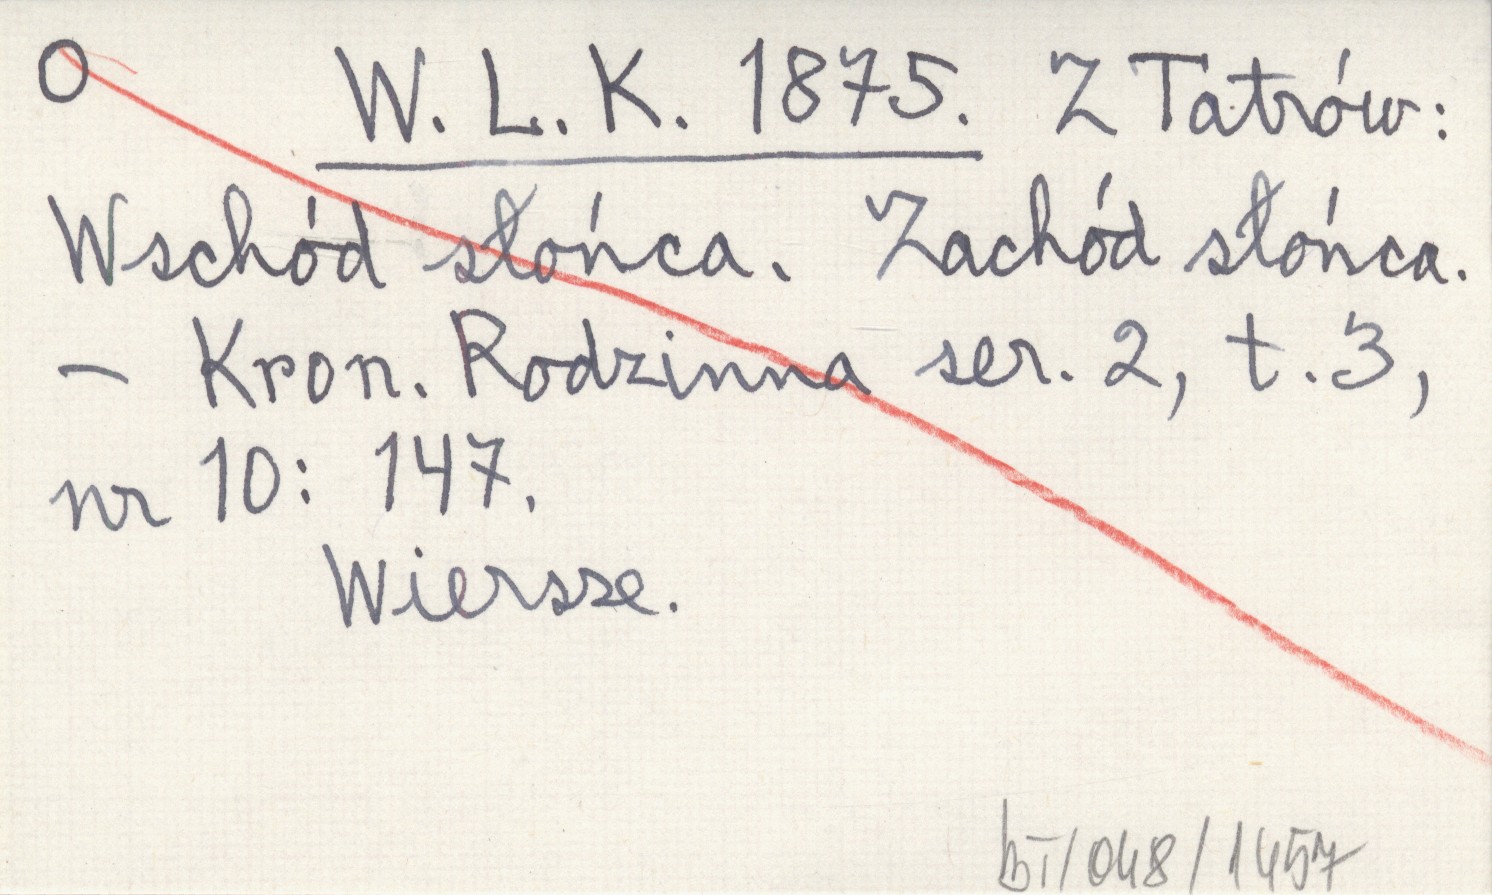 O W. L. K. 1875. Z Tatrów:
Wschód słońca. Zachód słońca.
– Kron. Rodzinna ser. 2, t. 3,
nr 10: 147.
Wiersze.
bT/048/1457